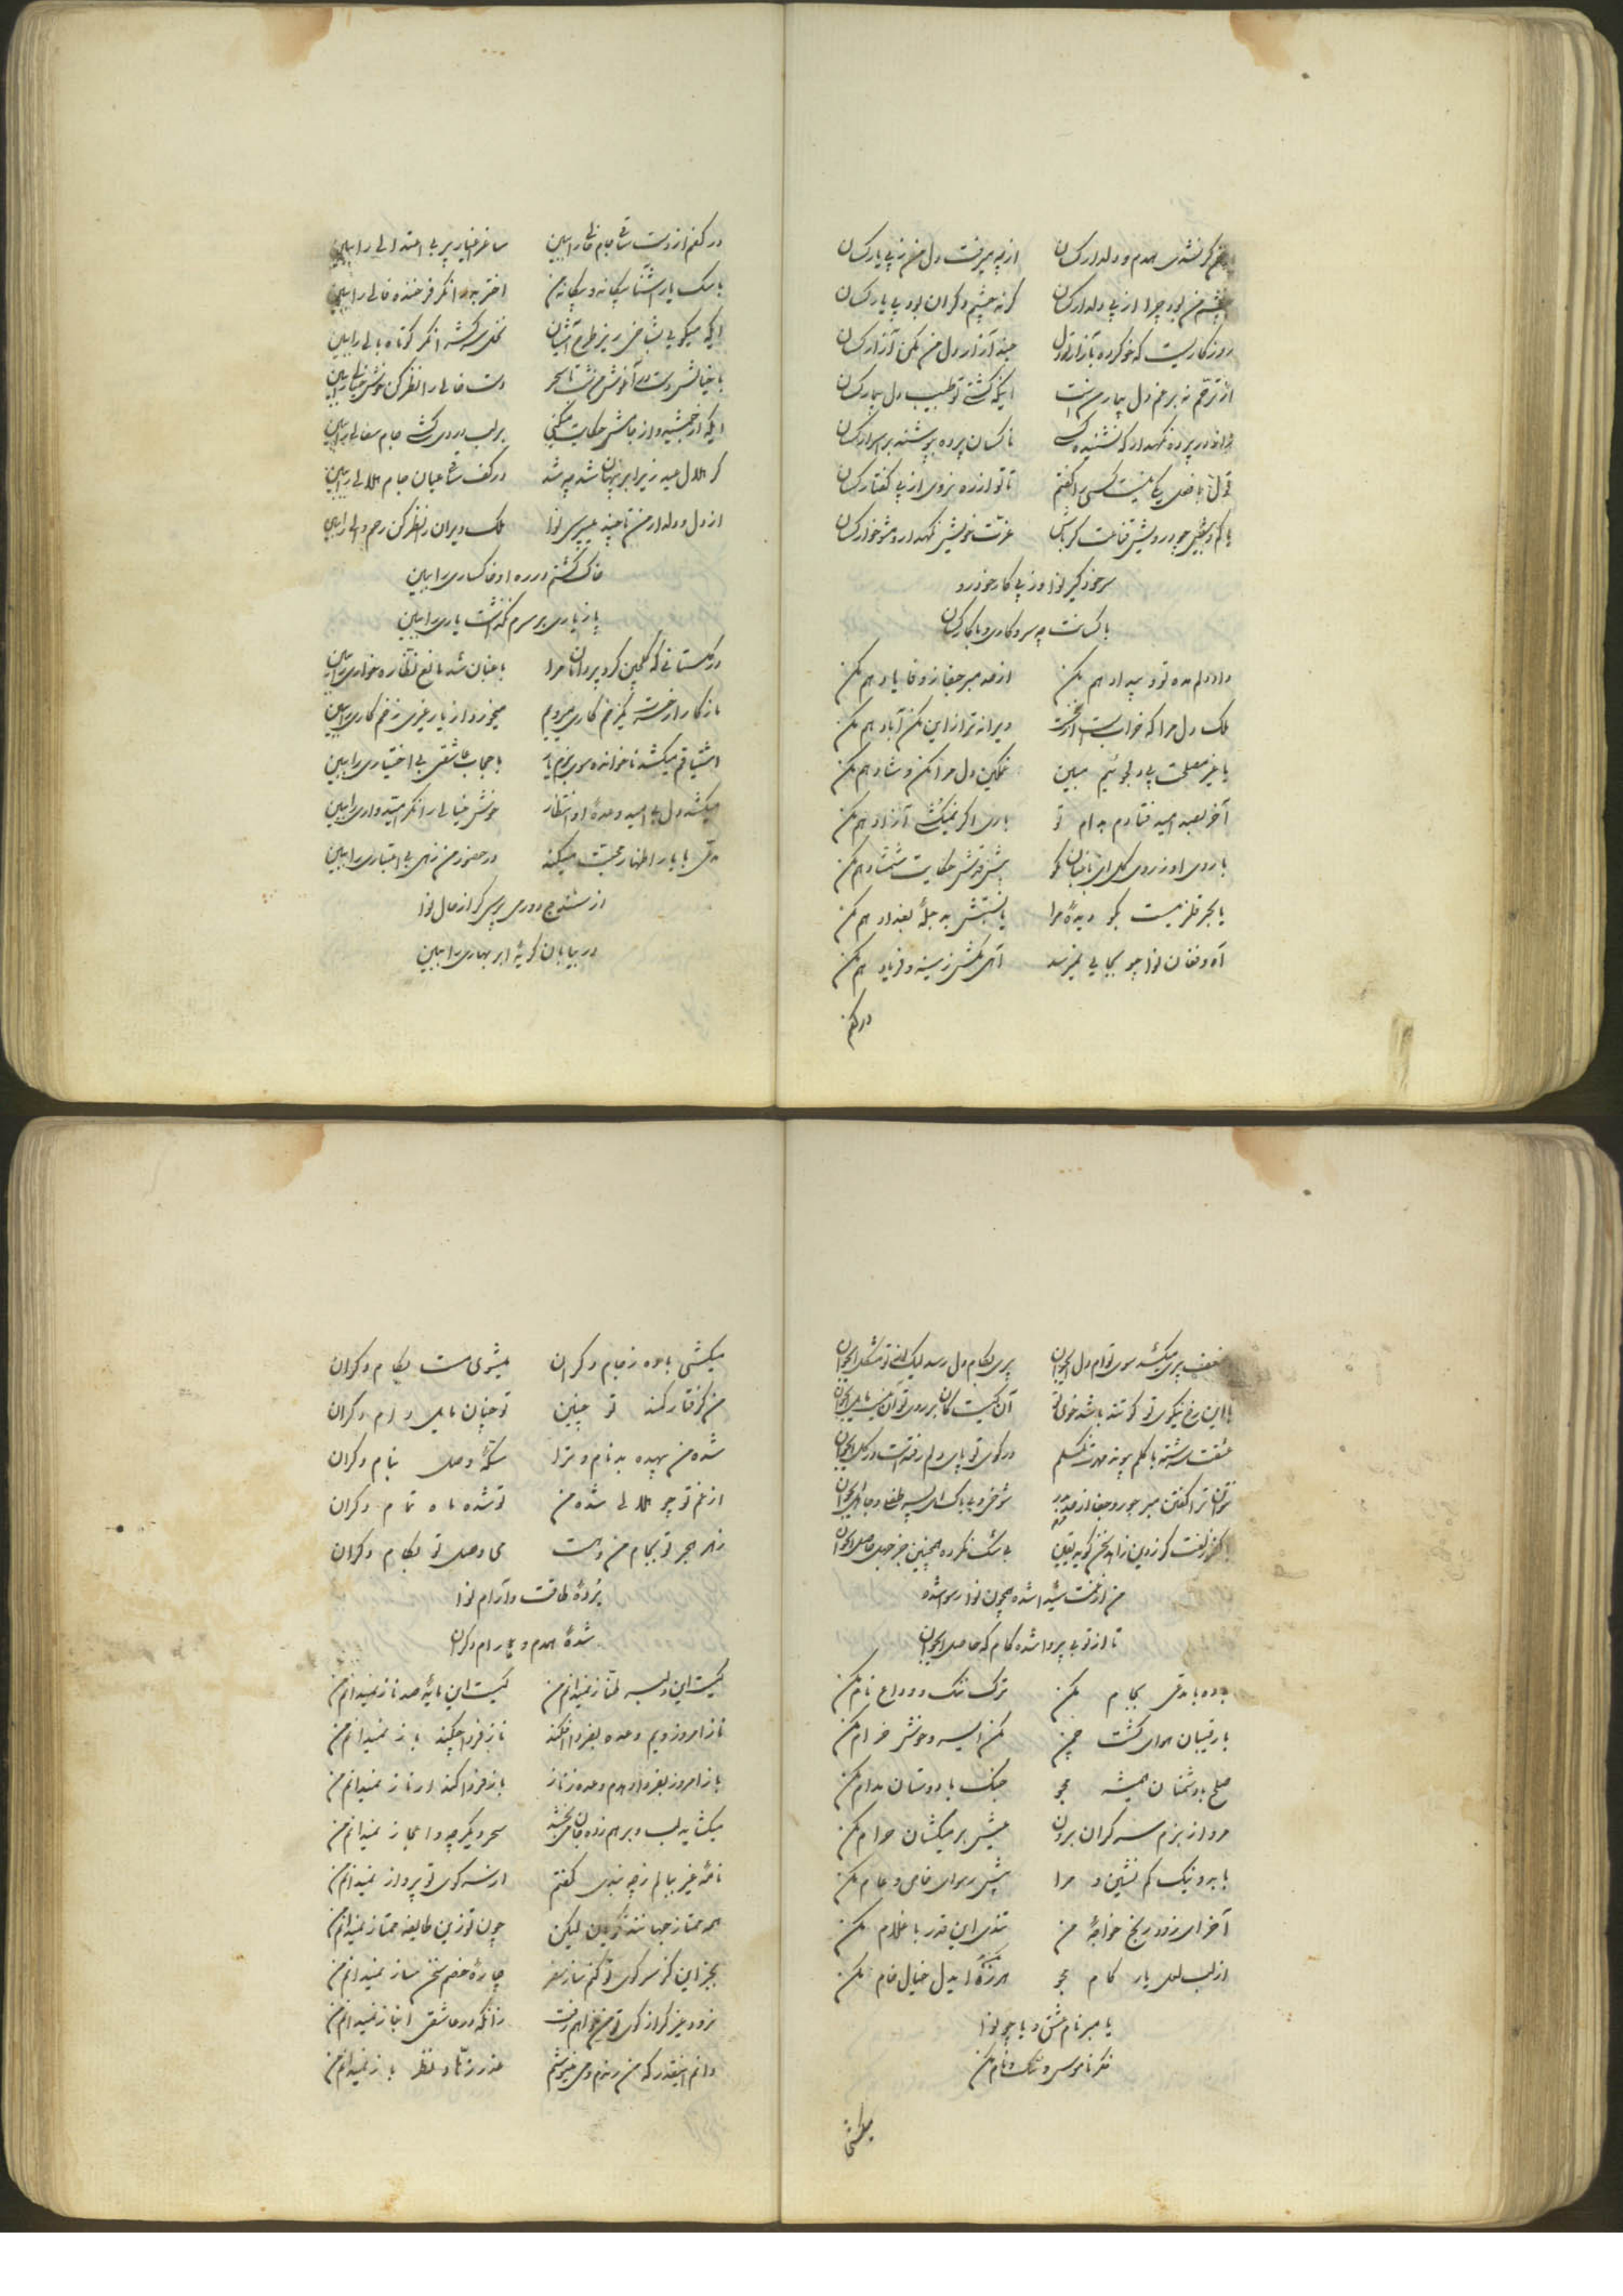 گر نشدی همدم و دلدار کسان از چه میرفت دل من ز پی یار کسان
چشم من بود چرا از پی دلدار کسان گر نه چشم دگران بود پی یار کسان
روزگاریست که خو کرده بآزار تو دل چند آزار دل من نکنی آزار کسان
از ترحم نه بر غم دل بیمار منت ایکه گشتی تو طبیب دل بیمار کسان
در پرده نگهدار که نشنیده کسی تا کسان پرده نپوشند بر اسرار کسان
قول با فعل یکی نیست کسی را گفتم تا تو از ره نروی از پی گفتار کسان
با کم و بیش چو درویش قناعت گر باش عزت خویش نگهدار و مشو خوار کسان
سر خود گیر نوا وز پی کار خود رو
با کسانت چه سر و کاری و با کار کسان
داد دلم مده تو و بیداد هم مکن از صد مبر جفا ز وفا یاد هم مکن
ملک دل مرا که خرابست از غمت ویرانه تر از این مکن آباد هم مکن
با غیر مصلحت پی دلجوئیم مبین غمگین دل مرا مکن و شاد هم مکن
آخر بصد امید فتادم بدام تو باری اگر نمیکشی آزاد هم مکن
با روی او ز روی گل ای باغبان مگو پیش قدش حکایت شمشاد هم مکن
یا بحر قلزمیست بگو دیدهٔ مرا یا نسبتش به دجلهٔ بغداد هم مکن
آه و فغان نوا چو بجایی نمیرسد آهی مکش ز سینه و فریاد هم مکن
در کفم
در کفم از دست ساقی جام خالی را ببین ساغر اغیار پر بی اعتدالی را ببین
با سگ یار آشنا بیگانه و بیگانه من اختر بد را نگر فرخنده فالی را ببین
ایکه میگویی بشاخی ریز طرح آشیان نخل سرکش را نگر کوتاه بالی را ببین
با خیالش دست در آغوش منشت تا سحر دست خالی را نظر کن خوش خیالی را ببین
ایکه از جمشید و از جامش حکایت میکنی بر لب دردی کش جام سفالی را ببین
گر هلال عید زیر ابر پنهان شد چه شد در کف ساقی عیان جام هلالی را ببین
از دل و دلدار من تا چند میپرسی نوا ملک ویران را نظر کن رحم والی را ببین
خاک گشتم در ره او خاکساری را ببین
باز یاری بر سرم نگذاشت یاری را ببین
در گلستانی که گلچین کرد پروا نا مرا باغبان شد مانع نظاره خواری را ببین
باز کار از دست یک زخم کاری میرویم میخورد از یار غیری زخم کاری را ببین
اشتیاقم میکشد ناخوانده سوی بزم یار با حجاب عاشقی بی اختیاری را ببین
میکشد دل با امید وعدهٔ او انتظار خوش خیالی را نگر امیدواری را ببین
مدعی با یار اظهار محبت میکند در حضور من زهی بی اعتباری را ببین
از دوری بپرس گر از حال نوا
در بیابان گریهٔ ابر بهاری را ببین
ضعف پیری میکشد سوی توام دل ای جوان پیری بکام دل رسد لیک از تو مشکل ای جوان
با این رخ نیکوی تو گو تند باشد خوی تو آن کیست کان بر روی تو آن نیست مایل ای جوان
عشقت سرشته با گلم پیوند مهرت نگسلم در کوی تو پای دلم رفتست در گل ای جوان
نتوان ترا گفتن مبر جور و جفا از حد بدر
کفر گفت گر ز دین زاهد سخن گوید یقین بی شک نکرده همچنین جز جهل حاصل ای جوان
من از غمت شیدا شده همچون نوا رسوا شده
تا از تو بی پروا شده کام که حاصل ای جوان
باده با مدعی بجام مکن ترک ننگ و وداع نام مکن
با رقیبان هوای گشت چمن مکن ای سرو خوش خرام مکن
صلح با دشمنان همیشه مجو جنگ با دوستان مدام مکن
مرو از بزم سرگران بیرون عیش بر میکشان حرام مکن
با بد و نیک کم نشین و مرا پیش رسوای خاص و عام مکن
آخر ای زود رنج خواجهٔ من تندی این قدر با غلام مکن
از لب لعل یار کام مجو هرزگی ایدل خیال خام مکن
یا مبر نام عشق و یا چو نوا
فکر ناموس و ننگ و نام مکن
میکشی
میکشی باده ز جام دگران میشوی مست بکام دگران
من گرفتار کمند تو چنین تو چنان مایل دام دگران
شده من بیهده بدنام و ترا سکهٔ وصل بنام دگران
از غم تو چو هلالی شده من تو شده ماه تمام دگران
زهر هجر تو بجام من و هست می وصل تو بکام دگران
بردهٔ طاقت و آرام نوا
شدهٔ همدم و رام دگران
کیست این دلبر طناز نمیدانم من کیست این مایهٔ صد ناز نمیدانم من
ناز امروز ویم وعده بفردا فکند ناز فردا چکند باز نمیدانم من
باز امروز بفردا دهدم وعده ز ناز باز فردا کند ار ناز نمیدانم من
میگشاید لب و بر هم زده جان میبخشد سحر دیگر چه و اعجاز نمیدانم من
نامهٔ غیر ببالم ز چه بندی گفتم از سر کوی تو پرواز نمیدانم من
همه ممتاز جهانند نکویان لیکن چون تو زین طایفه ممتاز نمیدانم من
بجز این کز سر کوی تو کنم ساز سفر چارهٔ خصم سخن ساز نمیدانم من
نرود غیر گر از کوی تو من خواهم رفت زانکه در عاشقی انباز نمیدانم من
دانم اینقدر که من رندم و می مینوشم نظر باز نمیدانم من